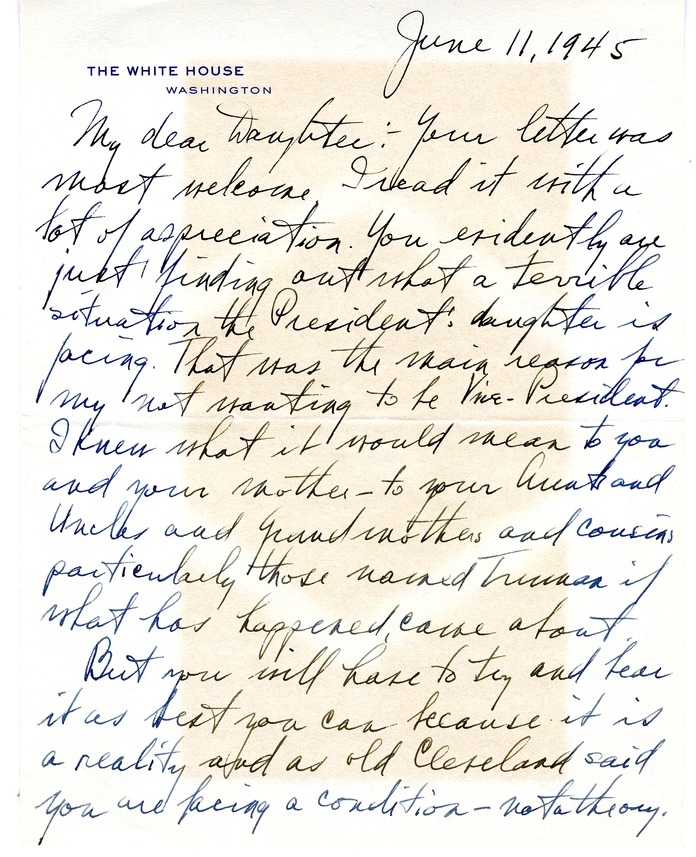 June 11, 1945
THE WHITE HOUSE
WASHINGTON
My dear Daughter:- Your letter was
most welcome, I read it with a
lot of appreciation. You evidently are
just finding out what a terrible
situation the President's daughter is
facing. That was the main reason for
my not wanting to be Vice-President.
I knew what it would mean to you
and your mother - to your Aunts and
Uncles and grandmothers and cousins
particularly those named Truman if
what has happened, came about.
But you will have to try and bear
it as best you can because it is
a reality and as old Cleveland said
you are facing a condition - not a theory.